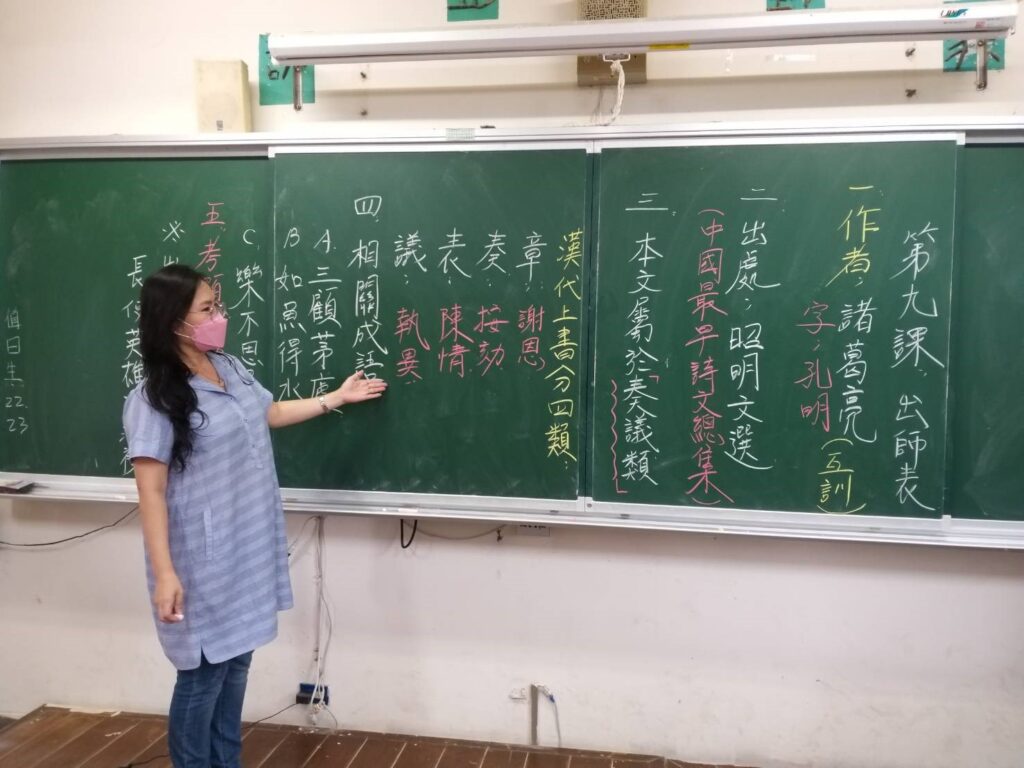 第九課、出師表
一、作者：諸葛亮(互訓)
字：孔明
二、出處：昭明文選
(中國最早詩文總集)
三、本文屬於「奏議類」
漢代上書分四類：
章：謝恩
奏：按劾
表：陳情
議：執異
四、相關成語
A、三顧茅廬
B、如魚得水
C、樂不思
五、考
※出
長使英雄
值日生22.23